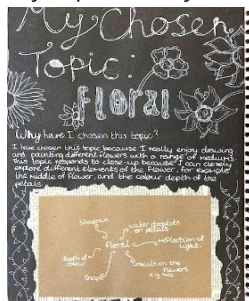 My Chosen
Topic.
floral
Why have I chosen this topic?
I have chosen this topic because I really enjoy drawing
and painting different flowers with a range of mediums
this topic responds to close-up because I can closely
explore different elements of the flower, for example
the middle of flower, and the colour depth of the
petals
Shadows
water droplets
on petals
floral
reflection of
light.
depth of
colour
Shape
insects on the
flowers